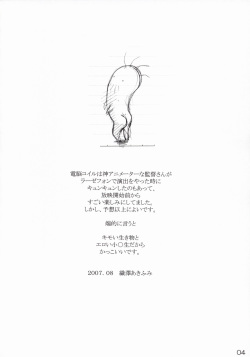 電脳コイルは神アニメーターな監督さんが
ラーゼフォンで演出をやった時に
キュンキュンしたのもあって、
放映開始前から
すごい楽しみにしてました。
しかし、予想以上によいです。
端的に言うと
キモい生き物と
エロい小○生だから
かっこいいです。
2007.08 織澤あきふみ
04